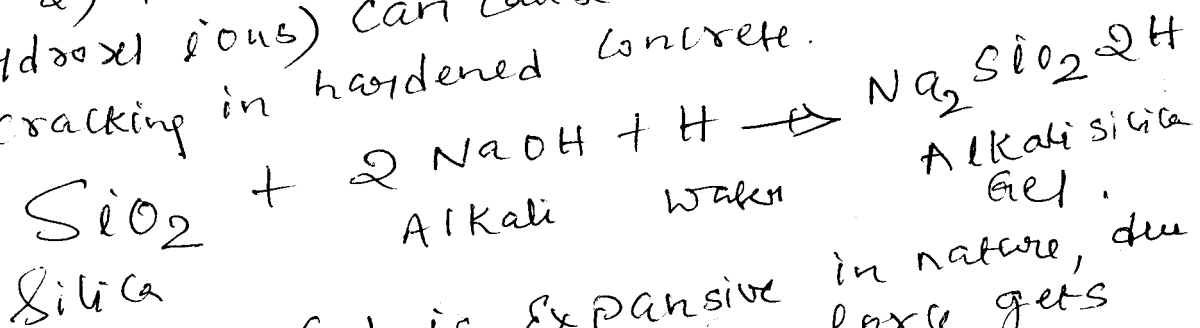 ions) can
cracking in hardened concrete.
SiO2 + 2 NaOH + H → Na2 SiO2 2H
Silica Alkali water Alkali silica Gel.
is expansive in nature, due
gets